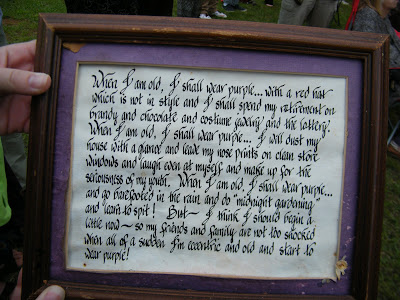 When I am old, I shall wear purple... with a red hat
which is not in style and I shall spend my retirement on
brandy and chocolate and costume jewelry and the lottery.
When I am old, I shall wear purple... I will dust my
house with a glance and leave my nose prints on clean store
windows and laugh even at myself and make up for the
seriousness of my youth. When I am old, I shall wear purple...
and go barefooted in the rain and do "midnight gardening"
and learn to spit! But~ I think I should begin a
little now~ so my friends and family are not too shocked
when all of a sudden I'm eccentric and old and start to
wear purple!